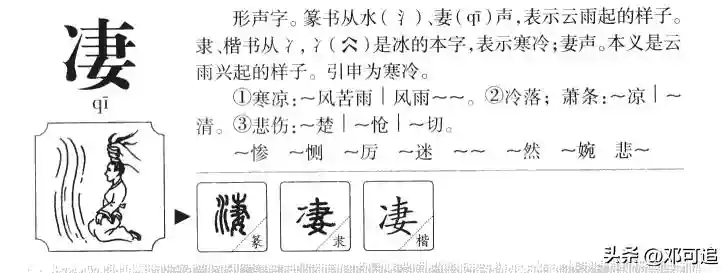 凄
qī
形声字。篆书从水(氵)、妻(qī)声,表示云雨起的样子。
隶、楷书从冫,冫(仌)是冰的本字,表示寒冷;妻声。本义是云
雨兴起的样子。引申为寒冷。
①寒凉:～风苦雨│风雨～～。②冷落;萧条:～凉│～
清。③悲伤:～楚│～怆│～切。
～惨 ～恻 ～厉 ～迷 ～～ ～然 ～婉 悲～
凄 篆
凄 隶
凄 楷
头条 @邓可追